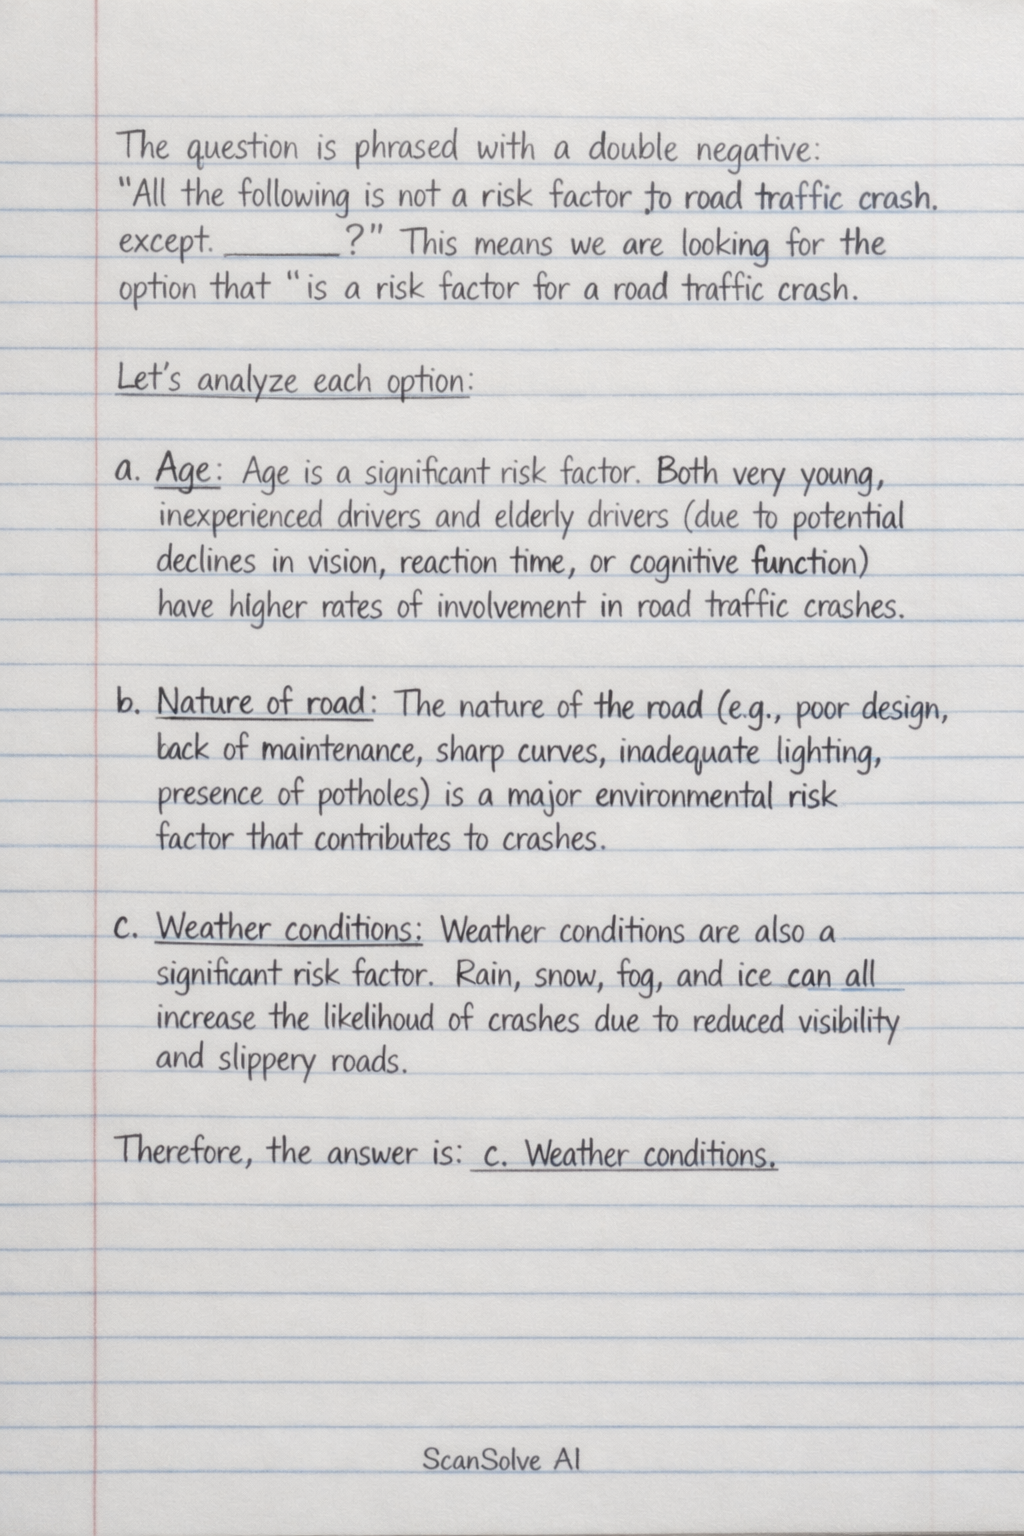 The question is phrased with a double negative:
"All the following is not a risk factor to road traffic crash.
except. ________?" This means we are looking for the
option that "is a risk factor for a road traffic crash.
Let's analyze each option:
a. Age: Age is a significant risk factor. Both very young,
inexperienced drivers and elderly drivers (due to potential
declines in vision, reaction time, or cognitive function)
have higher rates of involvement in road traffic crashes.
b. Nature of road: The nature of the road (e.g., poor design,
back of maintenance, sharp curves, inadequate lighting,
presence of potholes) is a major environmental risk
factor that contributes to crashes.
c. Weather conditions: Weather conditions are also a
significant risk factor. Rain, snow, fog, and ice can all
increase the likelihoud of crashes due to reduced visibility
and slippery roads.
Therefore, the answer is: c. Weather conditions.
ScanSolve AI